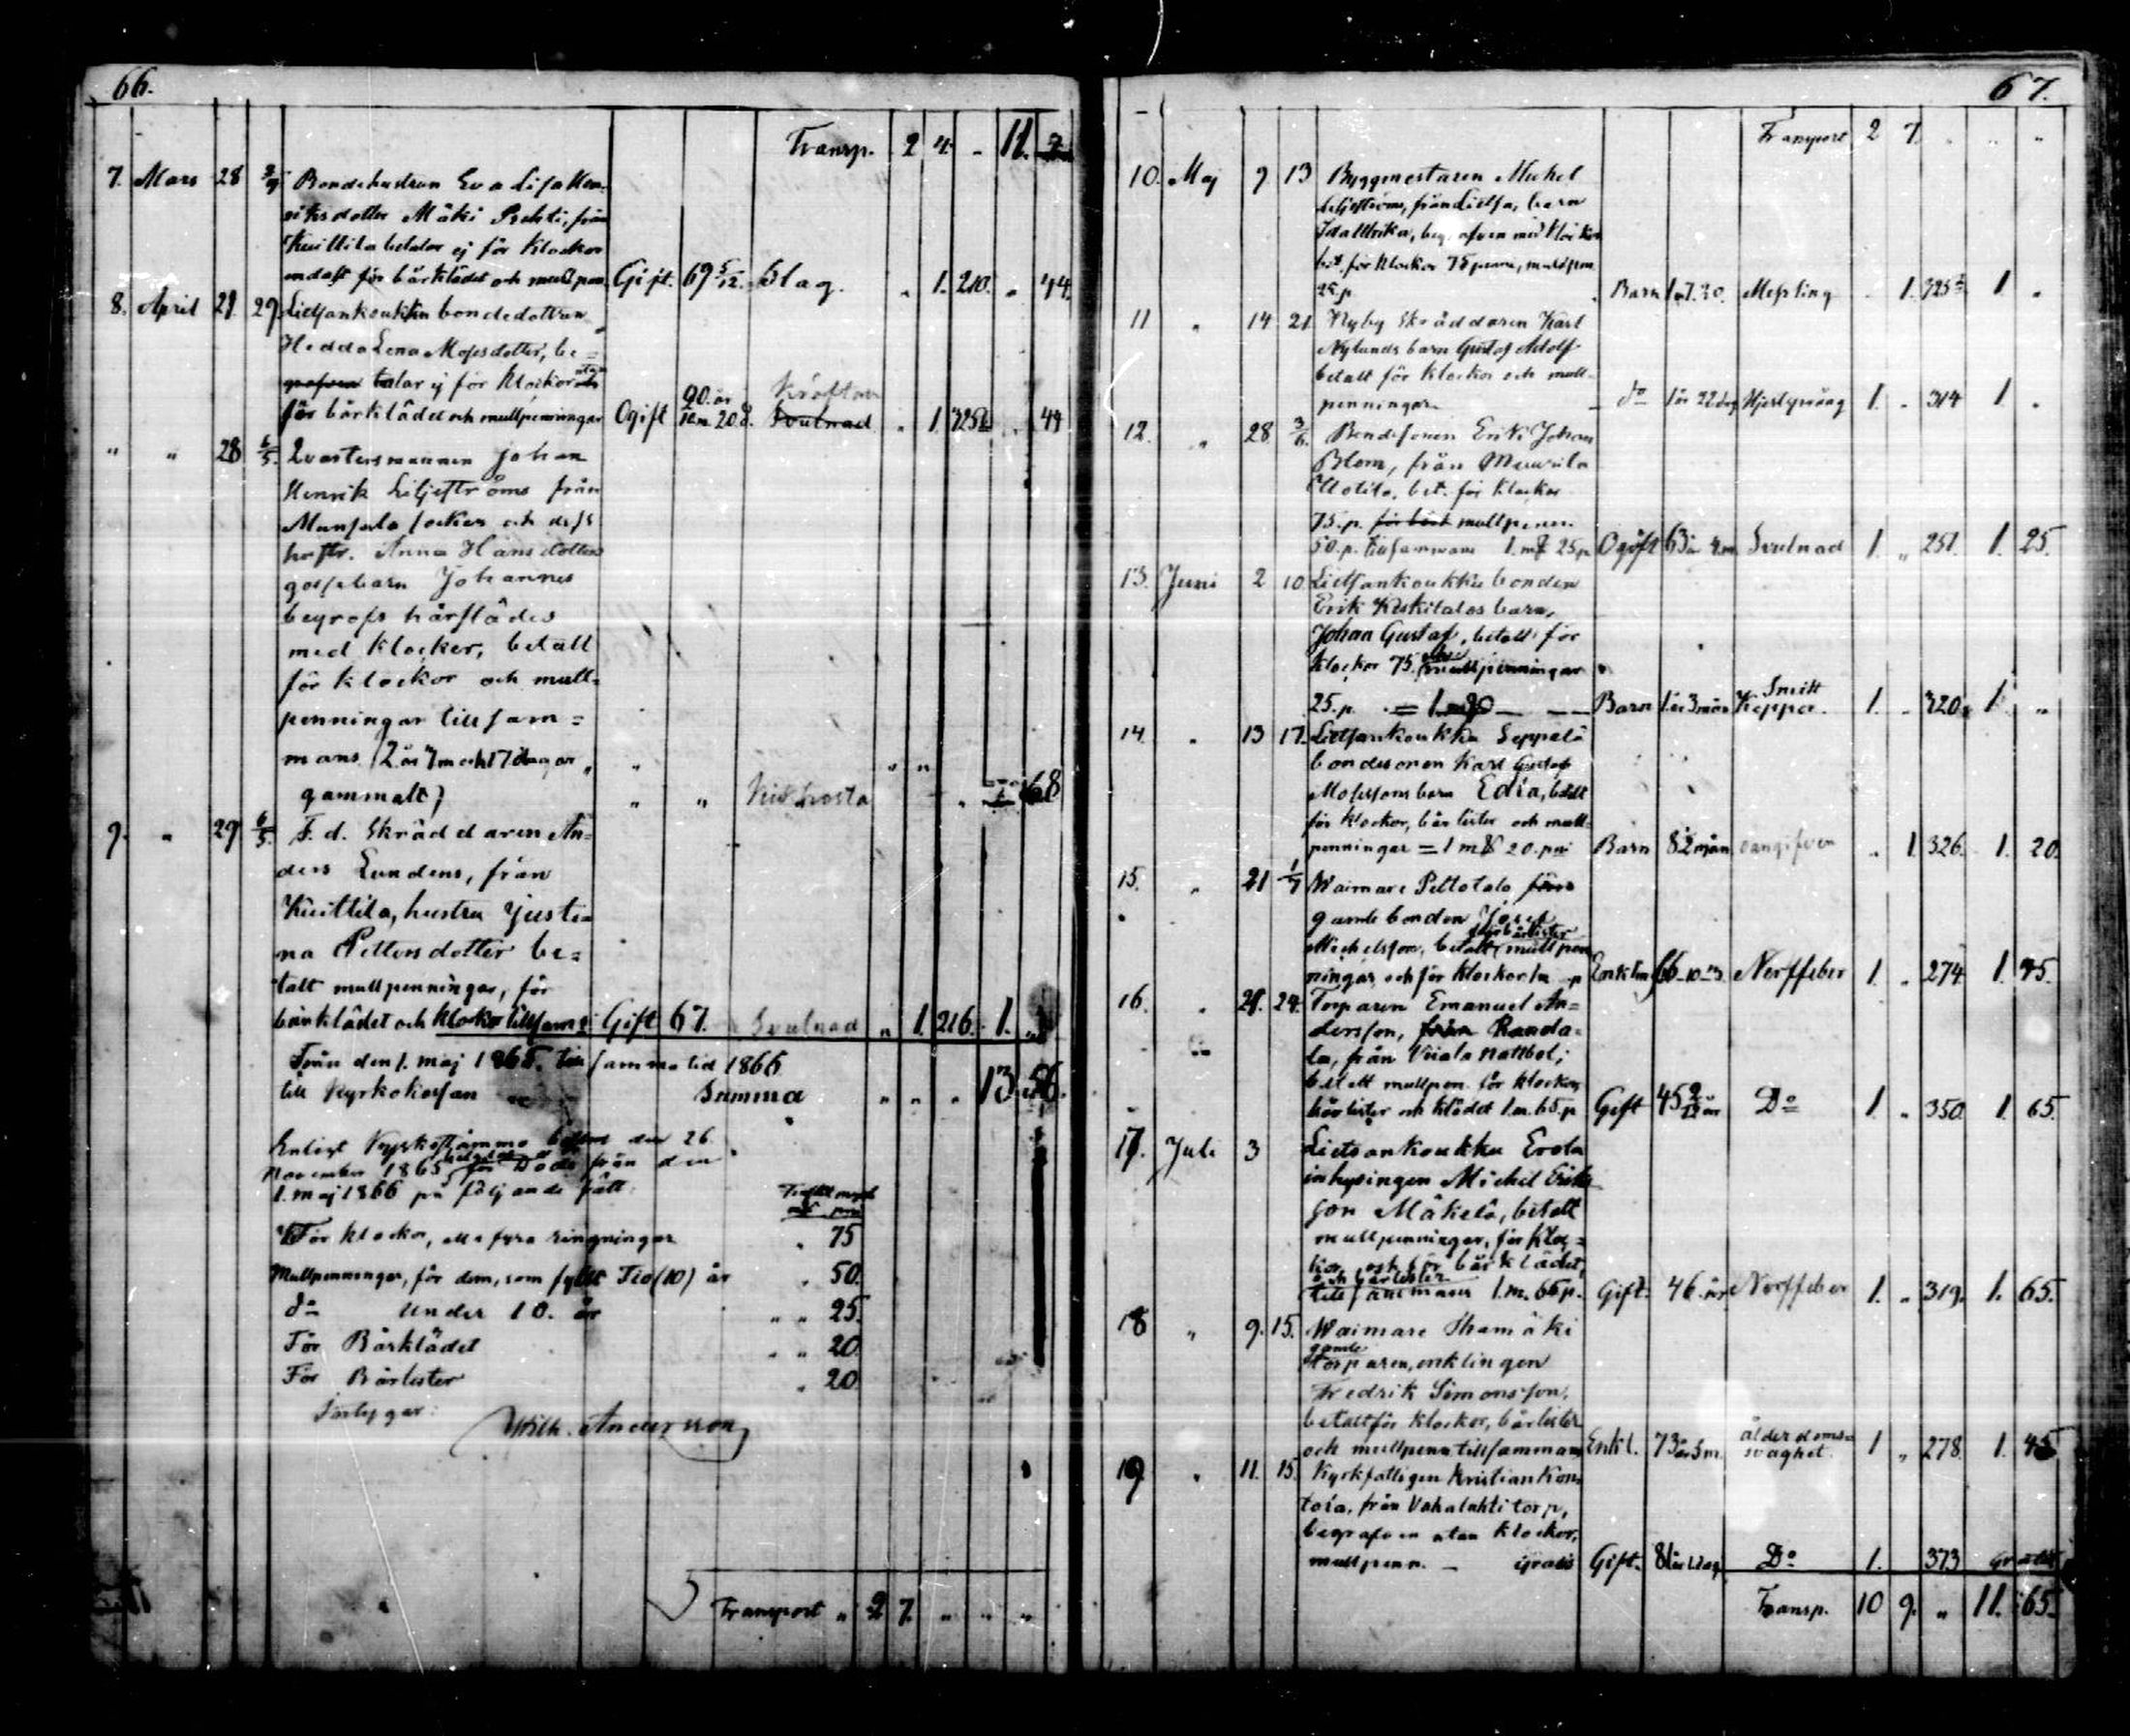 66.
Transp. 2 4. „ 11.
7. Mars 28 Bondehustrun Eva Lisa Hen-
riksdotter Mäki Prehti, från
Kuittila betalar ej för klockor
endast för bårklädet och mullpen. Gift. 69 5/12. Slag. „ 1. 210. „ 44.
8. April 21 29 Lietsankoukku bondedottren
Hedda Lena Mosesdotter, be=
grafven talar ej för klockor utan
för bårklädet och mullpenningar Ogift 90. år Kräftan Svulnad „ 1. „ 44
„ „ 28 Qvartersmannen Johan
Henrik Liljeströms från
socken och dess
hustr. Anna Hansdotters
gossebarn Johannes
begrofs härstädes
med klockor, betalt
för klockor och mull-
penningar tillsam=
mans (2 år 7 m och 17 dagar „
gammalt) „ „ Kikhosta 68
9. „ 29 6/5. F. d. Skräddaren An-
ders Lundens, från
Kuittila, hustru Justi-
na Pettersdotter be=
talt mullpenningar, för
bårklädet och klockor tillsam: Gift 67. Svulnad „ 1. 216. 1. „
Från den 1. maj 1865. till samma tid 1866
till Kyrkokassan Summa „ „ „ 13. 56.
Enligt Kyrkostämmo den 26.
November 1865 för Döde från den
1. maj 1866 på följande sätt:
För klockor, alla fyra ringningar „ 75
Mullpenningar, för dem, som fyllt Tio (10) år „ 50.
do under 10. år „ „ 25.
För Bårklädet „ „ 20.
För Bårlister „ 20.
Wilh. Andersson
Transport „ 2 7. „ „ „
67.
Transport 2 7. „ „ „
10. Maj 9 13 Byggmestaren Michel
Liljeströms, från Lietsa, barn
Ida Ulrika, begrafven med klockor
bet. för klockor 75 penni, mullpen
25 p. Barn Messling „ 1. 1. „
11 „ 14 21 Nyby Skräddaren Karl
Nylunds barn Gustaf Adolf
betalt för klockor och mull-
penningar do 1 år 22 dag 1. „ 314 1. „
12. „ 28 3/6. Bondesonen Erik Johan
Blom, från
bet. för klockor
75. p. för bår mullpenn.
50. p. tillsammans 1. mk 25 p. Ogift 63 år 4 m Svulnad 1. „ 251. 1. 25.
13. Juni 2 10. Lietsankoukku bonden
Erik Keskitalos barn,
Johan Gustaf, betalt för
klockor 75. mullpenningar
25. p. Barn 1 år 3 mån Smitt Koppor. 1. „ 320. 1. „
14. „ 13 17. Lietsankoukku Seppälä
bondesonen Karl Gustaf
Mosessons barn Edla, betalt
för klockor, bårlister och mull-
penningar = 1 mk 20. pni Barn oangifven „ 1. 326. 1. 20.
15. „ 21 1/7 Waimare Peltotalo
gamle bonden Josef
Michelsson, betalt mullpen
ningar, och för klockor 1 m p Enklin 66 Nerffeber 1. „ 274. 1. 45.
16. „ 21. 24. Torparen Emanuel An=
dersson, från Randa-
la, från Viiala nattbol;
betalt mullpen. för klockor,
bårlister och klädet 1 m. 65. p. Gift 45 år Do 1. „ 350. 1. 65.
17. Juli 3 Lietsankoukku Erola
inhysingen Michel Eriks
son Mäkelä, betalt
mullpenningar, för kloc=
kor och för bårklädet,
och bårlister
tillsammans 1. m. 65 p. Gift. 46. år Nerffeber 1. „ 319. 1. 65.
18 „ 9. 15. Waimare Ihamäki
gamle
torparen, enklingen
Fredrik Simonsson,
betalt för klockor, bårlister
och mullpenn tillsammans Enkl. 73 år 3 m. ålderdoms=
svaghet. 1 „ 278. 1. 45
19. „ 11. 15. Kyrkfattigen Kristian Kon-
toia, från Vahalahti torp,
begrafven utan klockor,
mullpenn. — gratis Gift. Do 1. 373 gratis
Transp. 10 9. „ 11. 65.